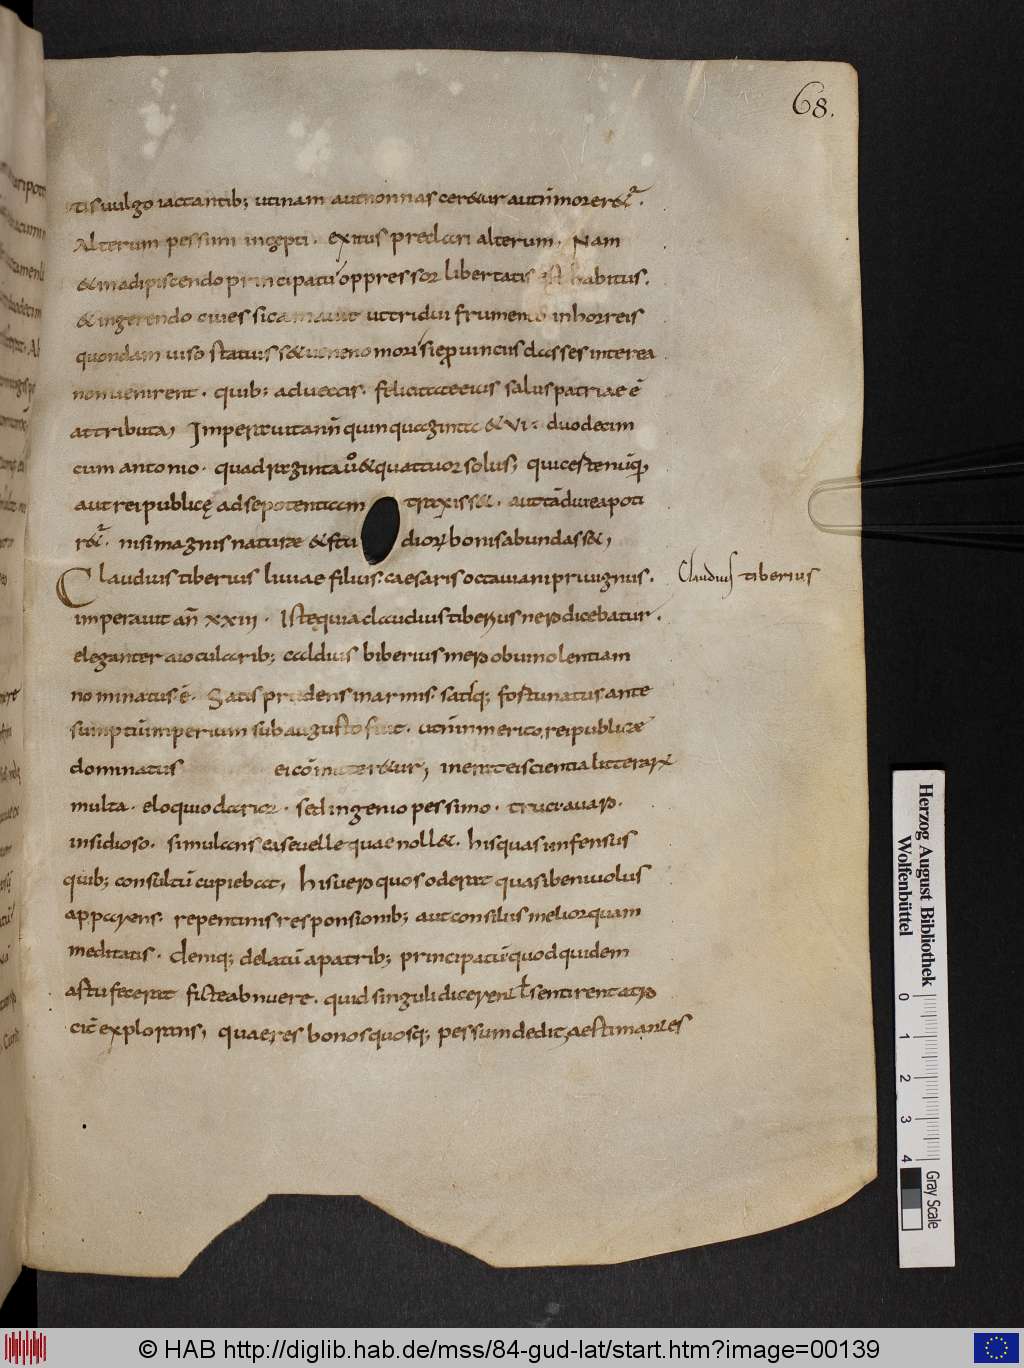 68.
tis uulgo iactantib; utinam aut non nasceretur aut ñ morer&ᷓ.
Alterum pessimi incepti. exitus preclari alterum. Nam
& in adipiscendo principatu oppressor libertatis ÷ habitus.
& in gerendo ciues sic amauit ut tridui frumento in horreis
quondam uiso statuiss& ueneno mori si e ꝓuinciis classes interea
non uenirent. quib; aduectis. felicitate eius salus patriae ē
attributa, Imperauit ann̄ quinquaginta & VI. duodecim
cum antonio. quadraginta uͦ & quattuor solus; qui certe nūq̄,
aut reipublicę ad se potentiam traxiss&. aut tā diu ea poti
r&ᷓ. nisi magnis naturae & studiorꝝ bonis abundass&,
Claudius tiberius liuiae filius. caesaris octauiani priuignus.
Claudius tiberius
imperauit an̄ xxiii. Iste quia claudius tiberius nero dicebatur.
eleganter a ioculorib; caldius biberius mero ob uinolentiam
nominatus ē. Satis prudens in armis. satisq; fortunatus ante
sumptū imperium sub augusto fuit. ut ñ inmerito reipublicae
dominatus ei cōmitteretur, inerat ei scientia litterarꝝ
multa. eloquio clarior. sed ingenio pessimo. truci auaro.
insidioso. simulans ea se uelle quae noll&. his quasi infensus
quib; consultū cupiebat, his uero quos oderat quasi beniuolus
apparens. repentinis responsionib; aut consiliis melior quam
meditatis. denique; delatū a patrib; principatū quod quidem
astu fecerat ficte abnuere. quid singuli dicerent ł sentirent atro
citē explorans, quae res bonos quosq; pessum dedit, aestimantes
Herzog August Bibliothek
Wolfenbüttel
0 1 2 3 4
Gray Scale
© HAB http://diglib.hab.de/mss/84-gud-lat/start.htm?image=00139